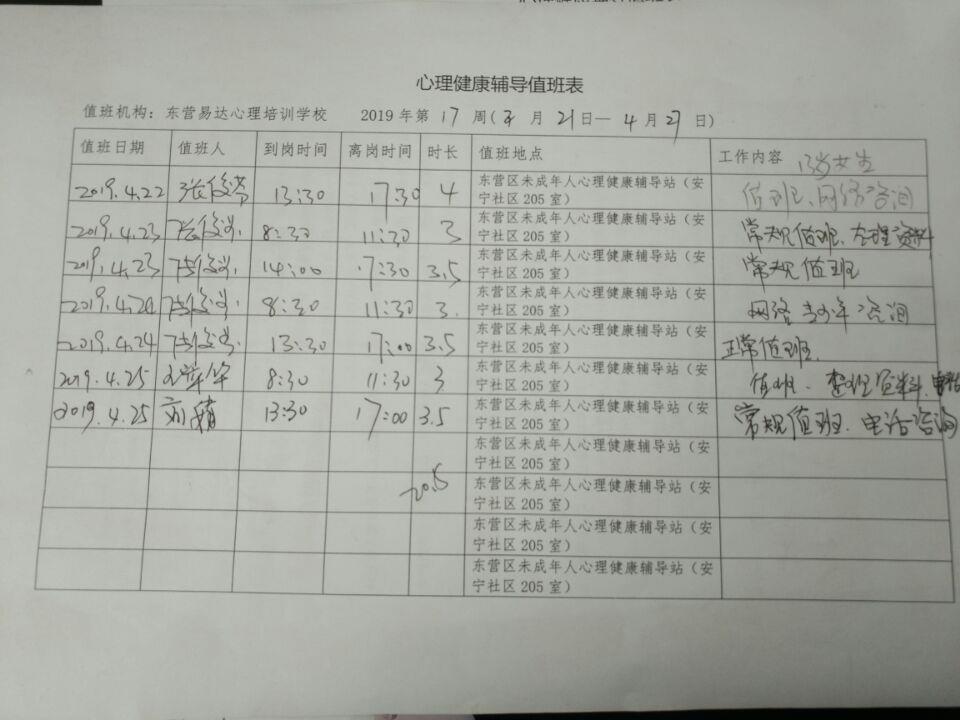 心理健康辅导值班表
值班机构：东营易达心理培训学校 2019年第17周( 月21日—4月27日)
值班日期 值班人 到岗时间 离岗时间 时长 值班地点 工作内容 13岁女生
2019.4.22 13:30 17:30 4 东营区未成年人心理健康辅导站（安
宁社区205室） 值班、网络咨询
2019.4.23 8:30 11:30 3 东营区未成年人心理健康辅导站（安
宁社区205室） 常规值班、整理资料
2019.4.23 14:00 17:30 3.5 东营区未成年人心理健康辅导站（安
宁社区205室） 常规值班
2019.4.24 8:30 11:30 3 东营区未成年人心理健康辅导站（安
宁社区205室） 网络青少年咨询
2019.4.24 13:30 17:00 3.5 东营区未成年人心理健康辅导站（安
宁社区205室） 正常值班
2019.4.25 8:30 11:30 3 东营区未成年人心理健康辅导站（安
宁社区205室） 值班、整理资料、
2019.4.25 13:30 17:00 3.5 东营区未成年人心理健康辅导站（安
宁社区205室） 常规值班、电话咨询
东营区未成年人心理健康辅导站（安
宁社区205室）
20.5 东营区未成年人心理健康辅导站（安
宁社区205室）
东营区未成年人心理健康辅导站（安
宁社区205室）
东营区未成年人心理健康辅导站（安
宁社区205室）